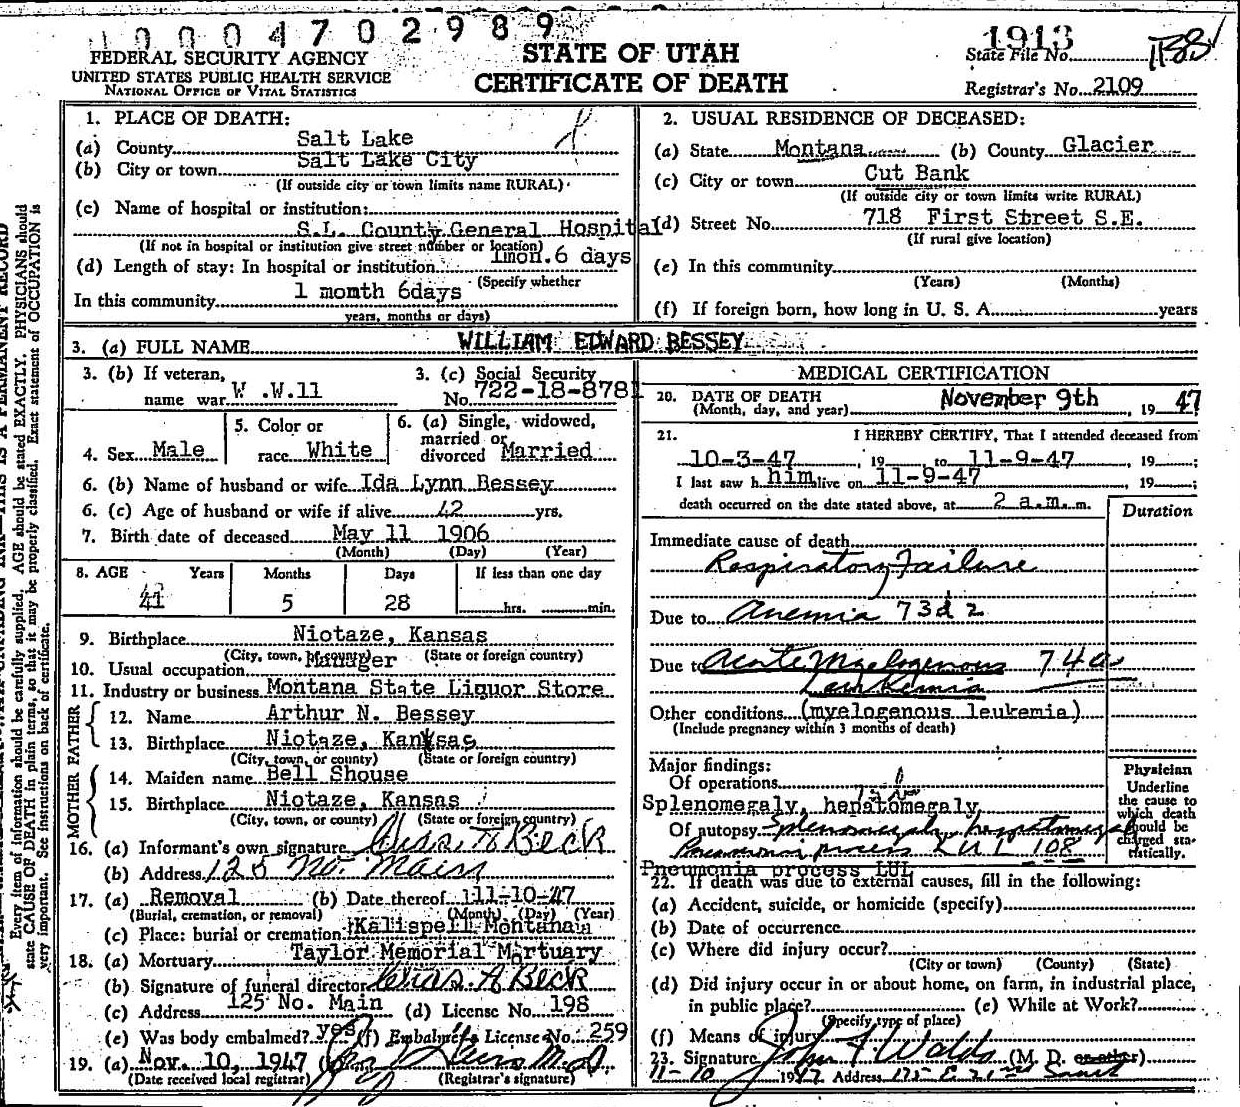 10004702989
FEDERAL SECURITY AGENCY
UNITED STATES PUBLIC HEALTH SERVICE
NATIONAL OFFICE OF VITAL STATISTICS
STATE OF UTAH
CERTIFICATE OF DEATH
1913
State File No.
Registrar's No. 2109
1. PLACE OF DEATH:
(a) County Salt Lake
(b) City or town Salt Lake City
(If outside city or town limits name RURAL)
(c) Name of hospital or institution:
S.L. County General Hospital
(If not in hospital or institution give street number or location)
(d) Length of stay: In hospital or institution 1mon. 6 days
(Specify whether
In this community 1 month 6days
years, months or days)
2. USUAL RESIDENCE OF DECEASED:
(a) State Montana (b) County Glacier
(c) City or town Cut Bank
(If outside city or town limits write RURAL)
(d) Street No. 718 First Street S.E.
(If rural give location)
(e) In this community
(Years) (Months)
(f) If foreign born, how long in U. S. A. years
3. (a) FULL NAME WILLIAM EDWARD BESSEY
3. (b) If veteran,
name war W .W.11
3. (c) Social Security
No. 722-18-8781
4. Sex Male
5. Color or
race White
6. (a) Single, widowed,
married or
divorced Married
6. (b) Name of husband or wife Ida Lynn Bessey
6. (c) Age of husband or wife if alive 42 yrs.
7. Birth date of deceased May 11 1906
(Month) (Day) (Year)
8. AGE Years Months Days If less than one day
41 5 28 hrs. min.
9. Birthplace Niotaze, Kansas
(City, town, or county) (State or foreign country)
10. Usual occupation Manager
11. Industry or business Montana State Liquor Store
FATHER
12. Name Arthur N. Bessey
13. Birthplace Niotaze, Kansas
(City, town, or county) (State or foreign country)
MOTHER
14. Maiden name Bell Shouse
15. Birthplace Niotaze, Kansas
(City, town, or county) (State or foreign country)
16. (a) Informant's own signature Chas. A Beck
(b) Address 125 No. Main
17. (a) Removal (b) Date thereof 11-10-47
(Burial, cremation, or removal) (Month) (Day) (Year)
(c) Place: burial or cremation Kalispell Montana
18. (a) Mortuary Taylor Memorial Mortuary
(b) Signature of funeral director Chas. A Beck
(c) Address 125 No. Main (d) License No. 198
(e) Was body embalmed? yes (f) Embalmer's License No. 259
19. (a) Nov. 10, 1947 (b) M.D.
(Date received local registrar) (Registrar's signature)
MEDICAL CERTIFICATION
20. DATE OF DEATH
(Month, day, and year) November 9th, 19 47
21. I HEREBY CERTIFY, That I attended deceased from
10-3-47, 19 to 11-9-47, 19 ;
I last saw h him alive on 11-9-47, 19 ;
death occurred on the date stated above, at 2 a.m. m.
Duration
Immediate cause of death
Respiratory Failure
Due to Anemia 73d2
Due to Acute Myelogenous 74a
Leukemia
Other conditions (myelogenous leukemia)
(Include pregnancy within 3 months of death)
Major findings:
Of operations
Splenomegaly, hepatomegaly
Of autopsy Splenomegaly, hepatomegaly
Pneumonia process LUL 108
Pneumonia process LUL
Physician
Underline
the cause to
which death
should be
charged sta-
tistically.
22. If death was due to external causes, fill in the following:
(a) Accident, suicide, or homicide (specify)
(b) Date of occurrence
(c) Where did injury occur?
(City or town) (County) (State)
(d) Did injury occur in or about home, on farm, in industrial place,
in public place? (e) While at Work?
(Specify type of place)
(f) Means of injury
23. Signature John F Waldo (M. D. or other)
11-10 1947 Address 175 E. 21st South
Every item of information should be carefully supplied. AGE should be stated EXACTLY. PHYSICIANS should
state CAUSE OF DEATH in plain terms, so that it may be properly classified. Exact statement of OCCUPATION is
very important. See instructions on back of certificate.